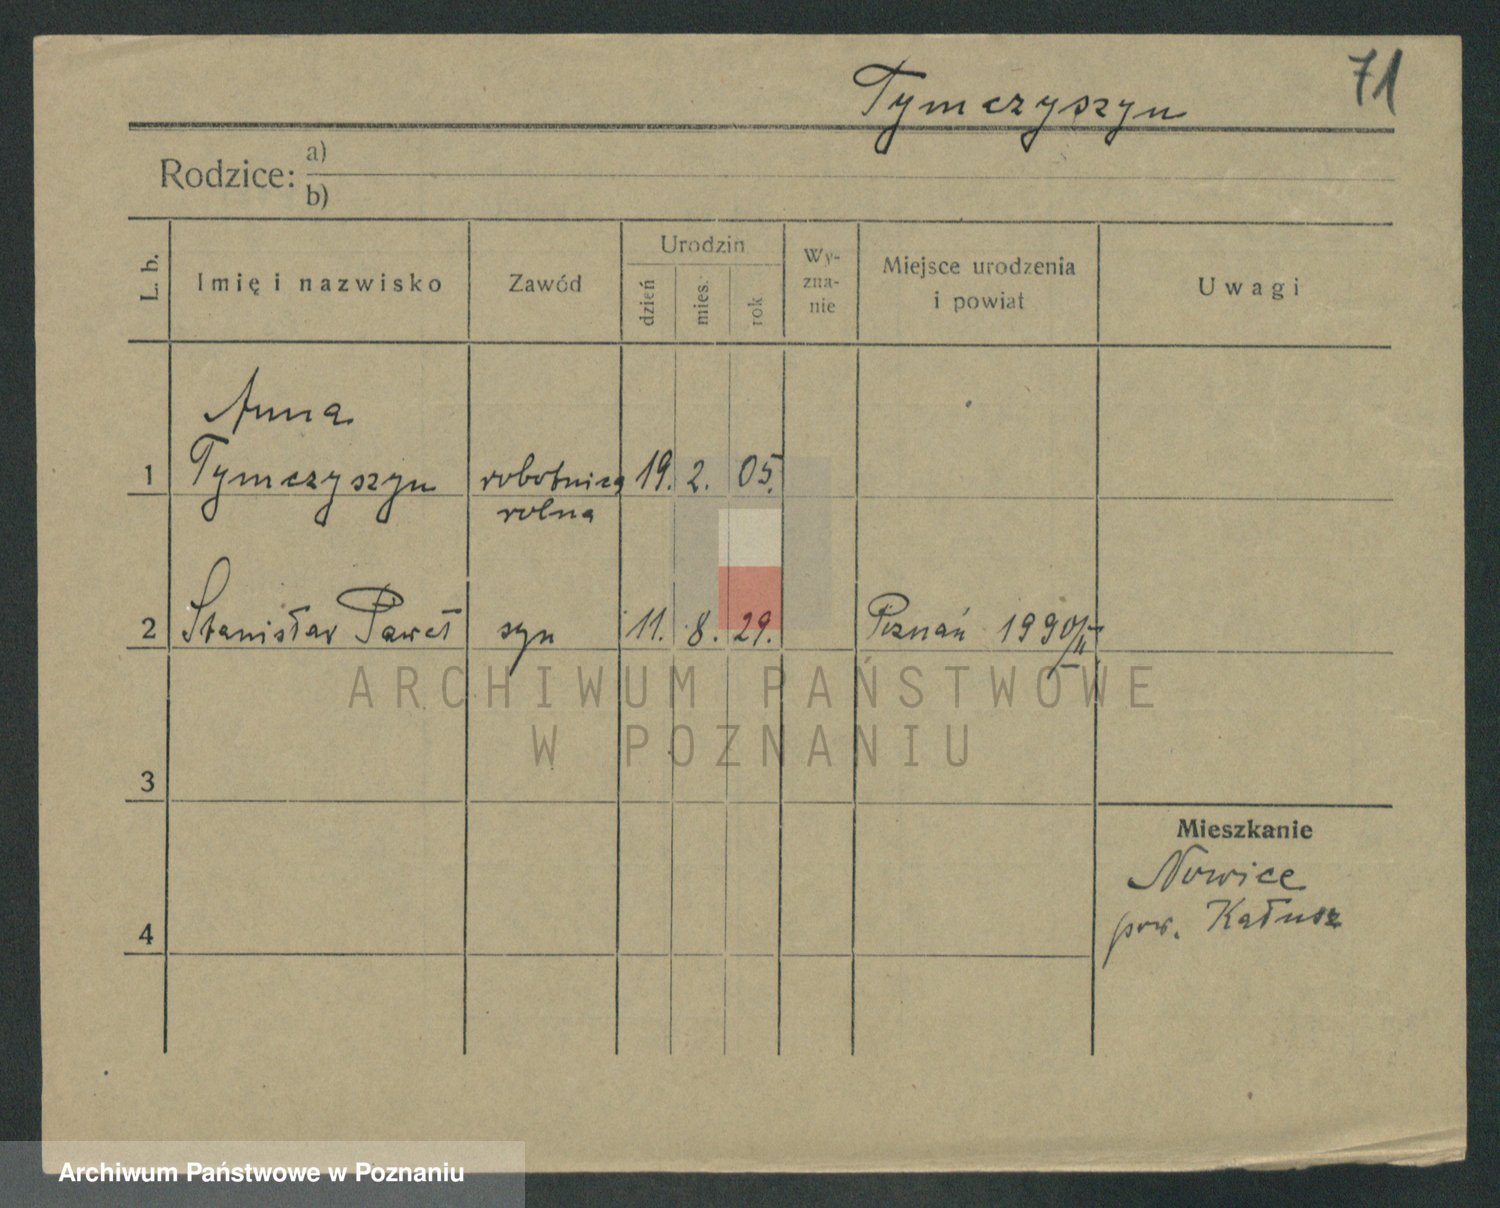 Tymczyszyn
71
Rodzice: a)
b)
L. b.
Imię i nazwisko
Zawód
Urodzin
dzień
mies.
rok
Wy-
zna-
nie
Miejsce urodzenia
i powiat
Uwagi
Anna
1 Tymczyszyn robotnica 19. 2. 05.
rolna
2 Stanisław Paweł syn 11. 8. 29. Poznań 1990/II
ARCHIWUM PAŃSTWOWE
W POZNANIU
3
Mieszkanie
Nowice
pow. Kałusz
4
Archiwum Państwowe w Poznaniu